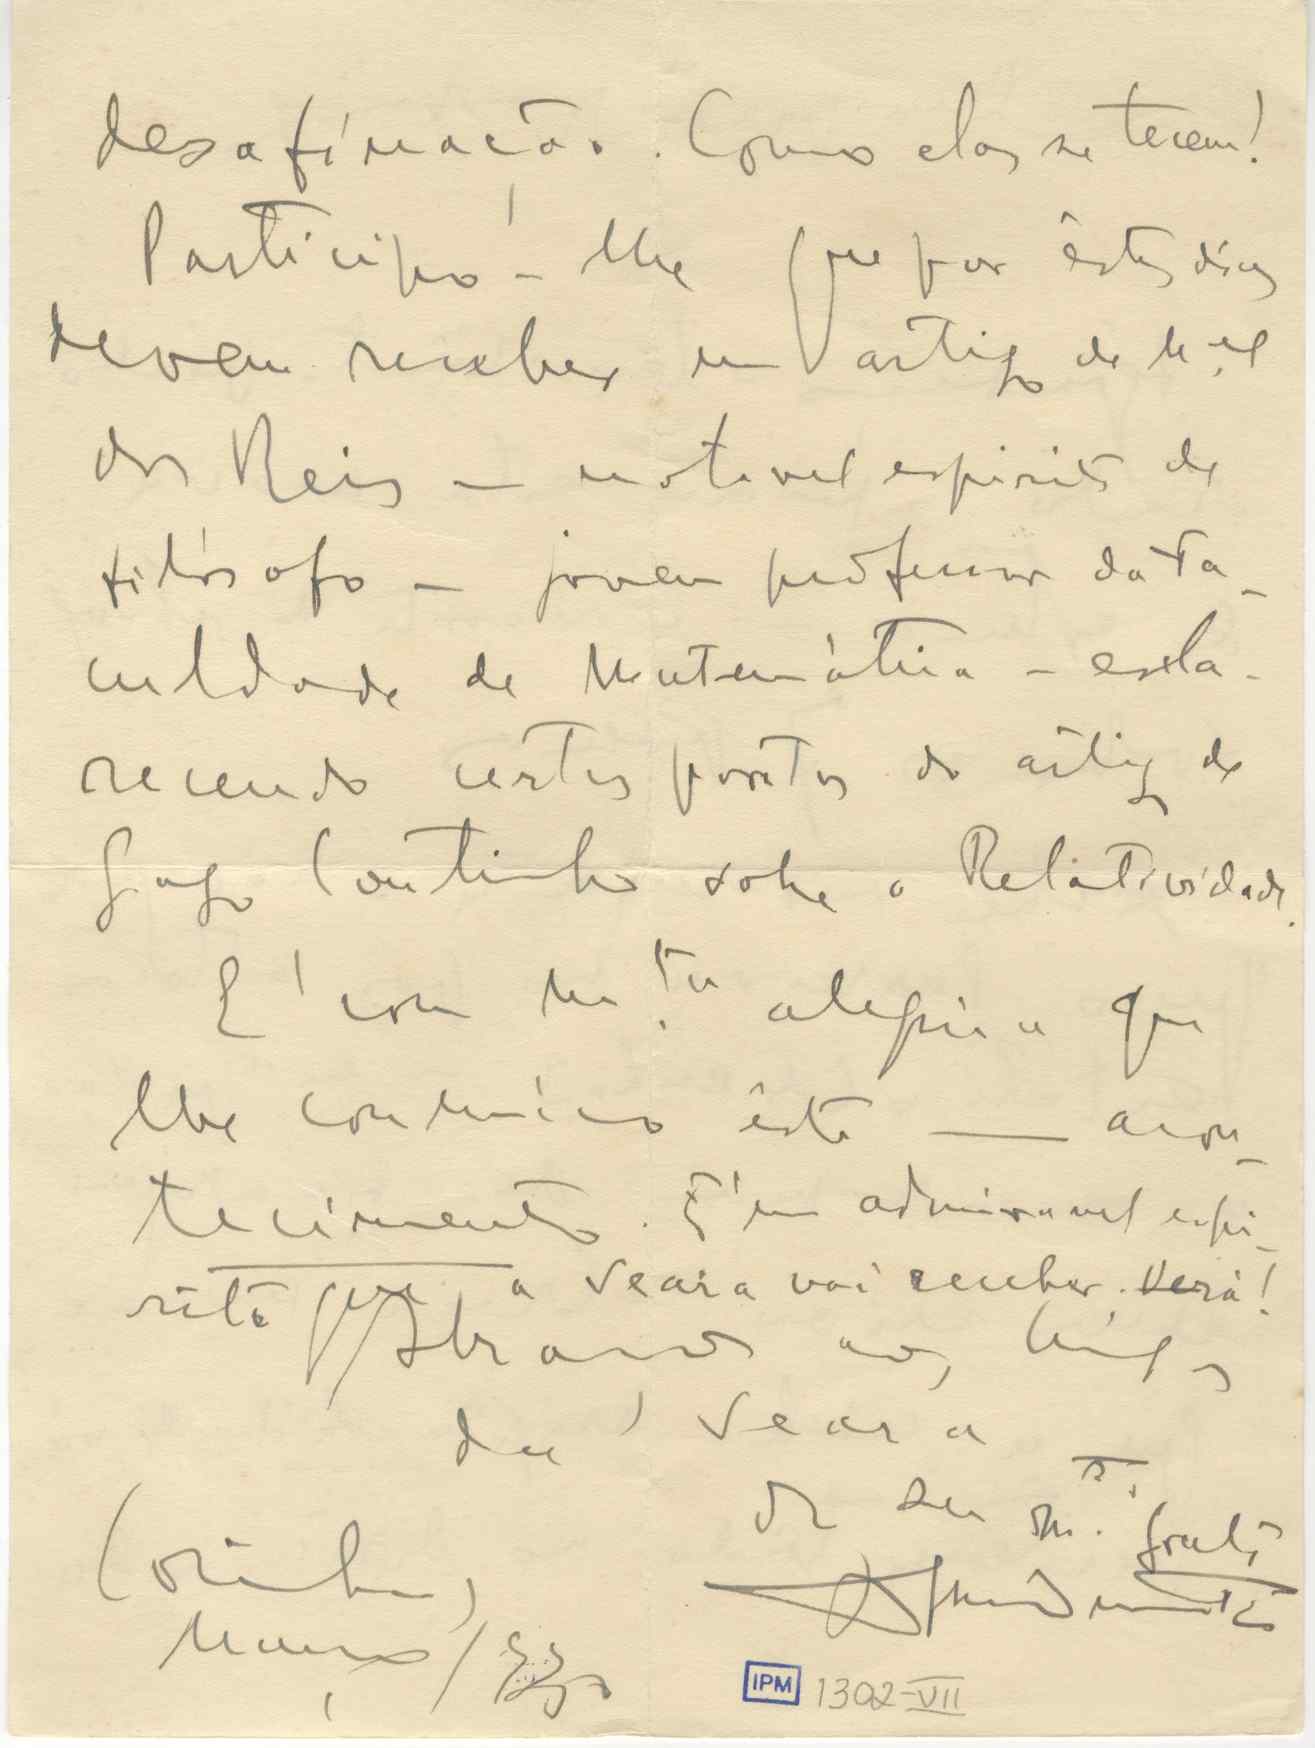 desafinação. Como elas se tecem!
Participo-lhe que por êstes dias
devem receber um artigo de M.el
dos Reis — notavel espirito de
filósofo — jovem professor da Fa-
culdade de Matemática — escla-
recendo certos pontos do artigo de
Gago Coutinho sobre a Relatividade.
E' com m.ta alegria que
lhe comunico êste — acon-
tecimento. É um admiravel espi-
rito que a Seara vai receber. Verá!
Abraços aos
da Seara
de seu m.to grato
Coimbra,
Março /
IPM 1302-VII